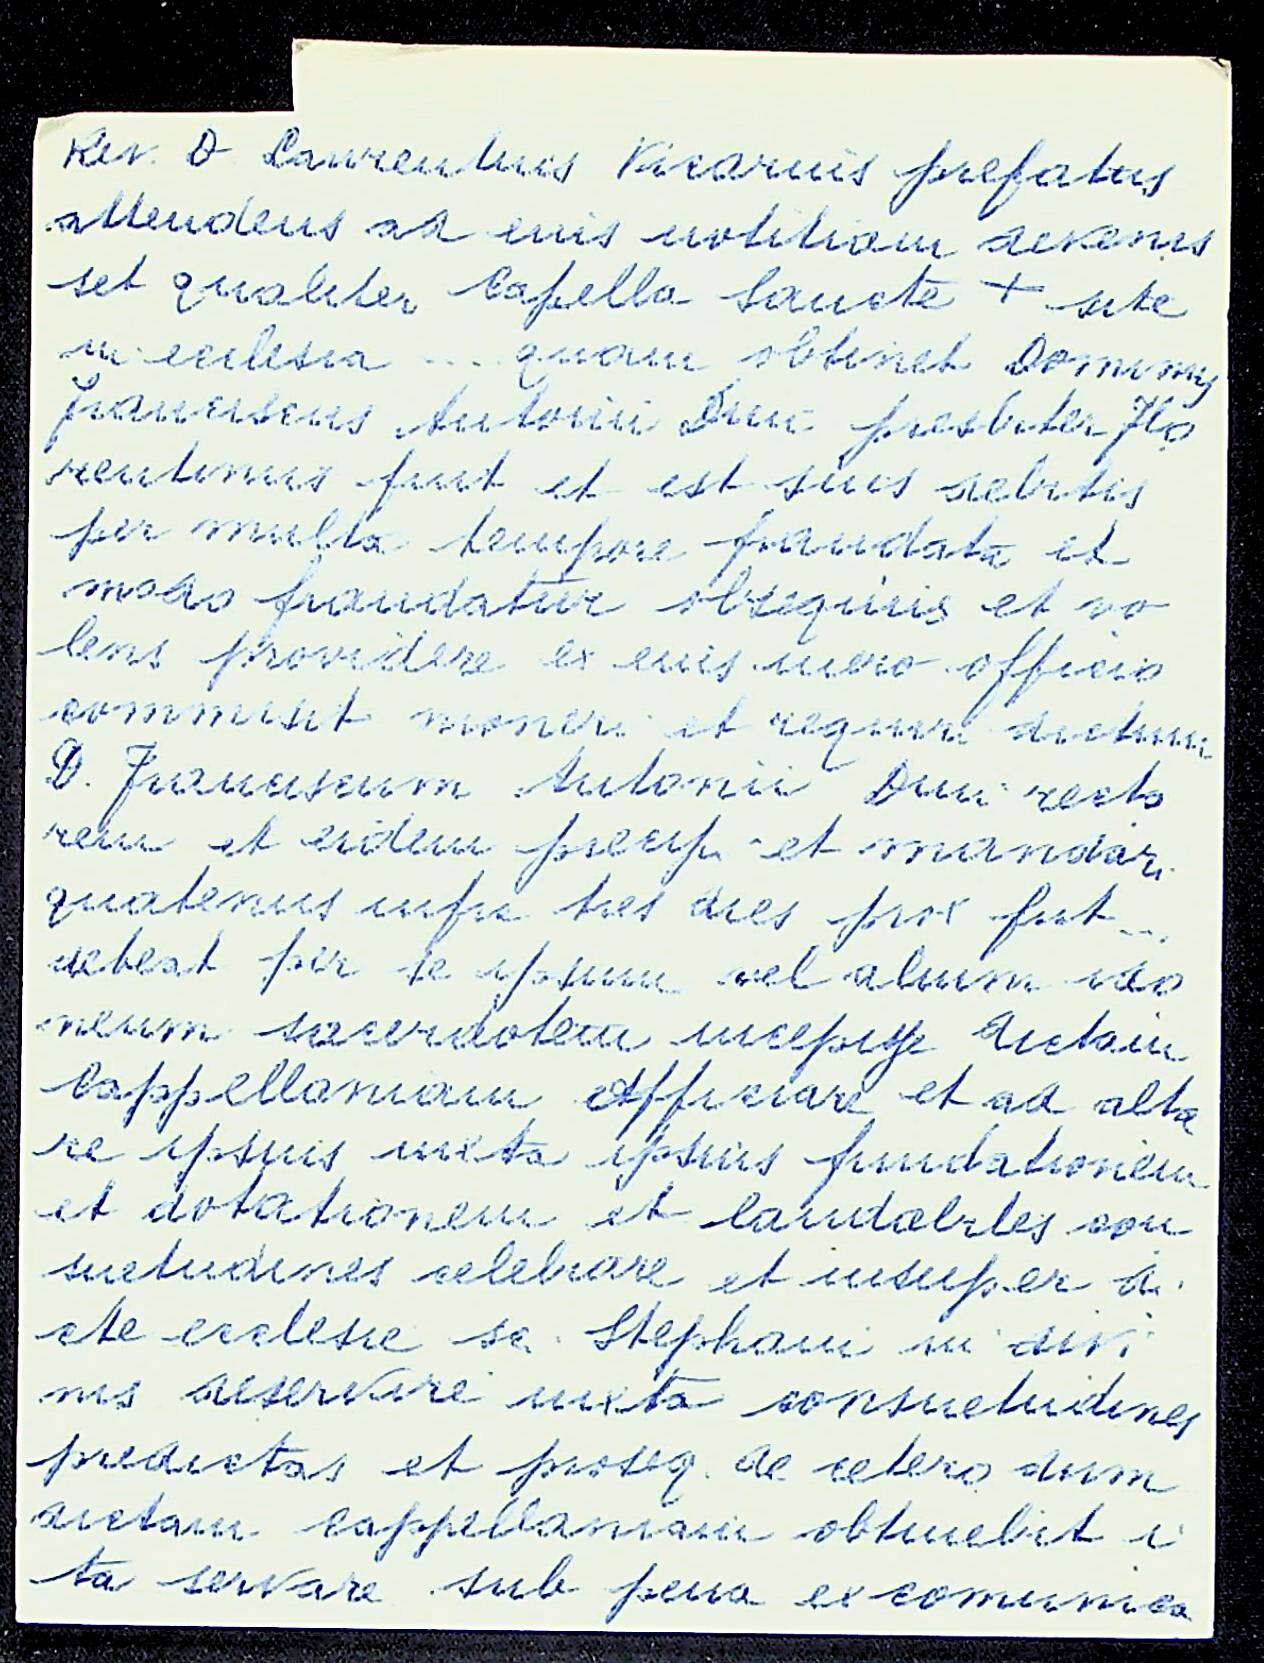 Rev. D. Laurentius Vicarius prefatus
attendens ad eius notitiam devenis
set qualiter Capella Sancte + site
in ecclesia ... quam obtinet Dominus
Franciscus Antonii Duni presbiter Flo
rentinus fuit et est suis debitis
per multa tempore fraudata et
modo fraudatur obsequiis et vo
lens providere ex eius mero officio
commisit moneri et requiri dictum
D. Franciscum Antonii Duni recto
rem et eidem precip. et mandari
quatenus infra tres dies prox fut...
debeat per se ipsum vel alium ido
neum sacerdotem incepisse dictam
Cappellaniam officiare et ad alta
re ipsius iuxta ipsius fundationem
et dotationem et laudabiles con
suetudines celebrare et insuper di
cte ecclesie sc. Stephani in divi
nis deservire iuxta consuetudines
predictas et proseq. de cetero dum
dictam cappellaniam obtinebit i
ta servare sub pena excomunica